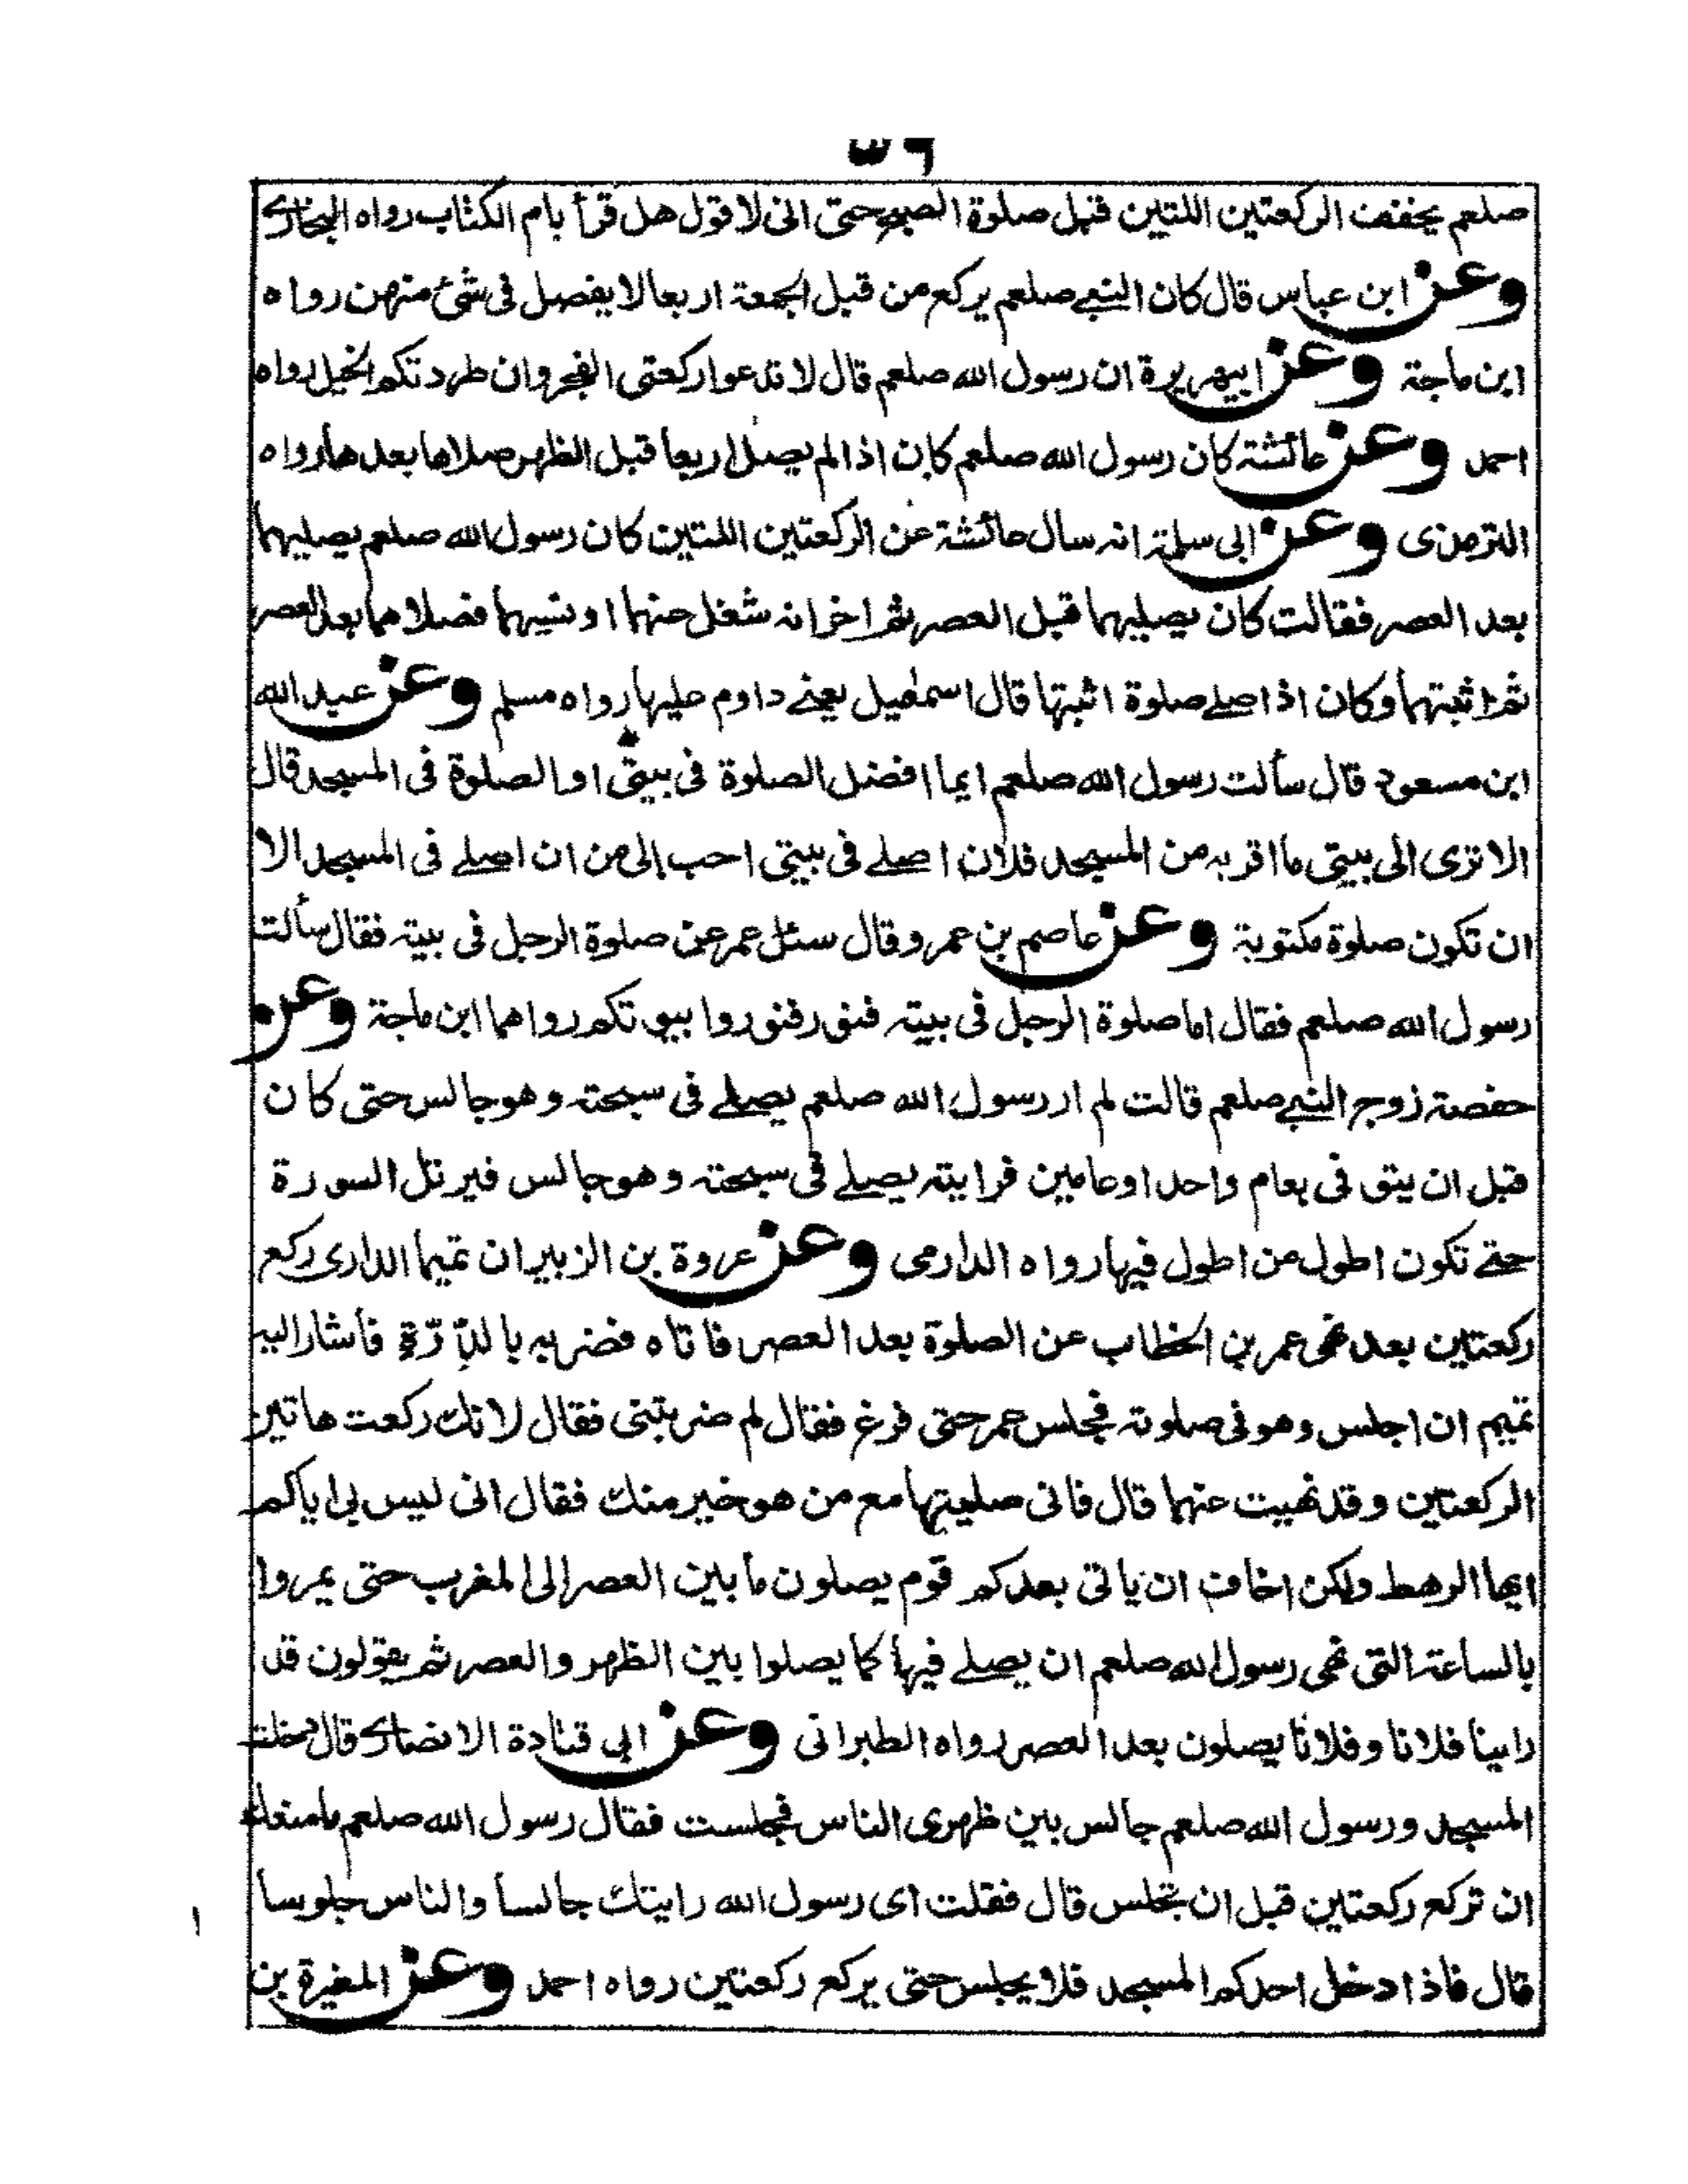 ٣٦
صلعم يخفف الركعتين اللتين قبل صلوة الصبح حتى انى لاقول هل قرأ بام الكتاب رواه البخارى
وعن ابن عباس قال كان النبى صلعم يركع من قبل الجمعة اربعا لا يفصل فى شئ منهن رواه
ابن ماجة وعن ابيهريرة ان رسول الله صلعم قال لا تدعوا ركعتى الفجر وان طردتكم الخيل رواه
احمد وعن عائشة كان رسول الله صلعم كان اذا لم يصل اربعا قبل الظهر صلاها بعدها رواه
الترمذى وعن ابى سلمة انه سال عائشة عن الركعتين اللتين كان رسول الله صلعم يصليهما
بعد العصر فقالت كان يصليهما قبل العصر ثم اخرانه شغل عنهما او نسيهما فصلاهما بعد العصر
ثم اثبتهما وكان اذا صلى صلوة اثبتها قال اسمعيل يعنى داوم عليها رواه مسلم وعن عبد الله
ابن مسعود قال سألت رسول الله صلعم ايما افضل الصلوة فى بيتى او الصلوة فى المسجد قال
الا ترى الى بيتى ما اقربه من المسجد فلان اصلى فى بيتى احب الى من ان اصلى فى المسجد الا
ان تكون صلوة مكتوبة وعن عاصم بن عمرو قال سئل عمر عن صلوة الرجل فى بيته فقال سألت
رسول الله صلعم فقال اما صلوة الرجل فى بيته فنور فنوروا بيوتكم رواهما ابن ماجة وعن
حفصة زوج النبى صلعم قالت لم ار رسول الله صلعم يصلى فى سبحته وهو جالس حتى كان
قبل ان يتوفى بعام واحد او عامين فرايته يصلى فى سبحته وهو جالس فيرتل السورة
حتى تكون اطول من اطول فيها رواه الدارمى وعن عروة بن الزبير ان تميما الدارى ركع
ركعتين بعد نهى عمر بن الخطاب عن الصلوة بعد العصر فاتاه فضربه بالدِّرَّةِ فأشار اليه
تميم ان اجلس وهو فى صلوته فجلس عمر حتى فرغ فقال لم ضربتنى فقال لانك ركعت هاتين
الركعتين وقد نهيت عنهما قال فانى صليتها مع من هو خير منك فقال انى ليس بى اياكم
ايها الرهط ولكن اخاف ان ياتى بعدكم قوم يصلون ما بين العصر الى المغرب حتى يمروا
بالساعة التى نهى رسول الله صلعم ان يصلى فيها كما يصلوا بين الظهر والعصر ثم يقولون قد
راينا فلانا وفلانا يصلون بعد العصر رواه الطبرانى وعن ابى قتادة الانصارى قال دخلت
المسجد ورسول الله صلعم جالس بين ظهرى الناس فجلست فقال رسول الله صلعم ما منعك
ان تركع ركعتين قبل ان تجلس قال فقلت اى رسول الله رايتك جالسا والناس جلوسا
قال فاذا دخل احدكم المسجد فلا يجلس حتى يركع ركعتين رواه احمد وعن المغيرة بن